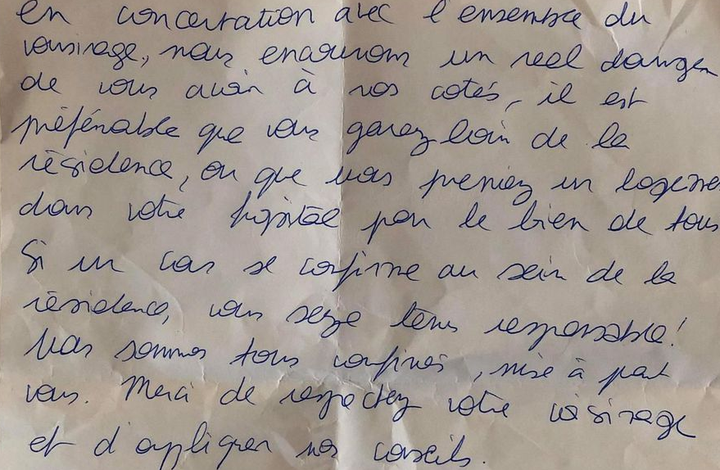 en concertation avec l'ensemble du
voisinage, nous encourons un réel danger
de vous avoir à nos cotés, il est
préférable que vous garez loin de la
résidence, ou que vous preniez un logeme
dans votre hôpital pour le bien de tous
Si un cas se confirme au sein de la
résidence, vous serze tenus responsable!
Nous sommes tous confinés, mise à part
vous. Merci de respectez votre voisinage
et d'appliquer nos conseils.